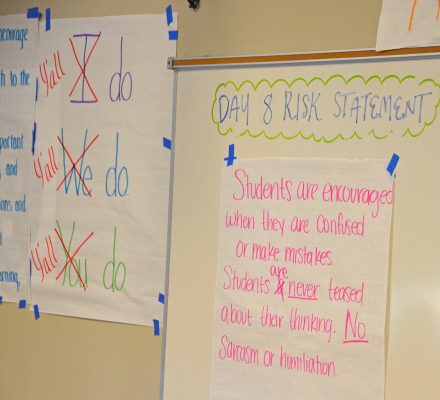 ncourage
h to the
portant
and
ons and
arning.
Y'all I do
Y'all We do
Y'all You do
DAY 8 RISK STATEMENT
Students are encouraged
when they are confused
or make mistakes.
are
Students never teased
about their thinking. No
Sarcasm or humiliation.